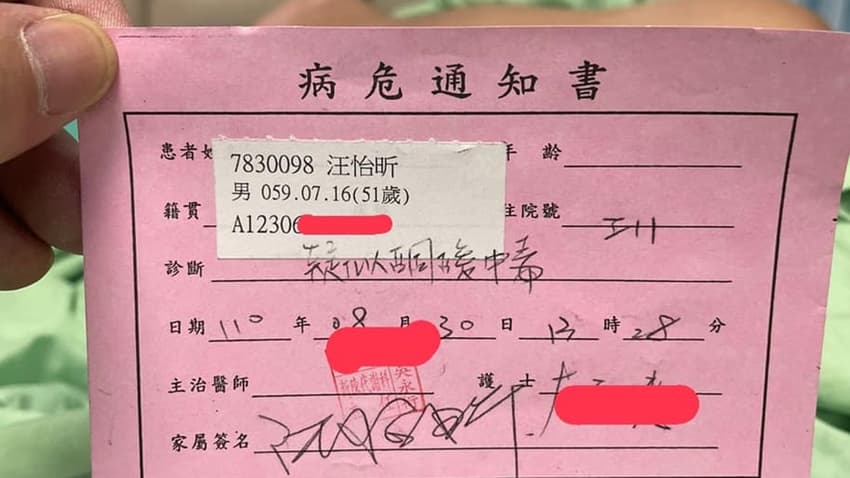 病危通知書
患者姓 年齡
7830098 汪怡昕
男 059.07.16(51歲)
籍貫 住院號
A12306
診斷 疑似酮酸中毒
日期 110 年 08 月 30 日 13 時 28 分
主治醫師 護士
家屬簽名